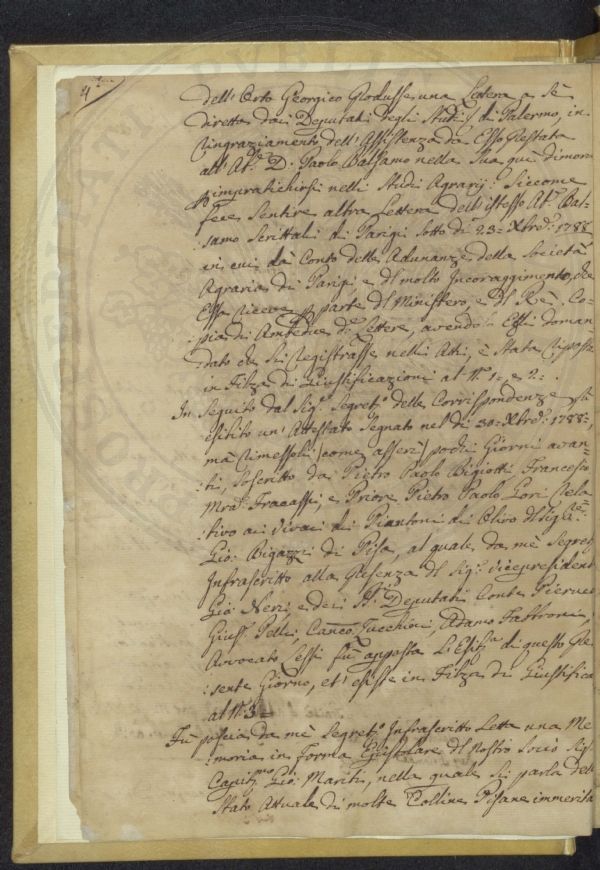 4
dell' Orto Georgico Produsse una Lettera a Sè
diretta dai Deputati degli Studij di Palermo, in
ringraziamento dell' Assistenza da Esso Prestata
all' Ab.e D. Paolo Balsamo nella Sua quì dimora
p impratichirsi nelli Studi Agrarij: Siccome
fece Sentire altra Lettera dell' istesso Ab.e Bal=
samo Scrittali di Parigi Sotto dì 23= Xbre 1788
in cui dà Conto delle Adunanze della Società
Agraria di Parigi e del molto Incorraggimento, che
Essa riceve p parte del Ministero, e del Rè. Co=
pia di Amedue d.e Lettere, avendo Essi doman=
dato che Si registrasse nelli Atti, è Stata riposta
in Filza di Giustificazioni al N.o 1= e 2=.
In Seguito dal Sig.r Segret.o delle Corrispondenze fù
esibito un' Attestato Segnato nel dì 30= Xbre 1788=,
mà rimessoli (come asserì) pochi Giorni avan=
=ti, Soscritto da Pietro Paolo Bigiotti, Francesco
Fracassi, e Priore Pietro Paolo Lori rela=
tivo ai Vivai di Piantoni di Olivo del Sig.re
Gio: Bigazzi di Pisa, al quale da mè Segret
Infrascritto alla Presenza del Sig.r Vicepresident
Gio: Neri, e dei SS.i Deputati Conte Pierucci
Giuss.e Pelli, Canco Zucchini, Adamo Fabbroni,
Avvocato Lessi fù apposta L'Esib.a di questo Pre
=sente Giorno, et' esiste in Filza di Giustifica
al N.o 3=
Fù poscia da mè Segret.o Infrascritto Letta una Me
=moria in Forma Epistolare del Nostro Socio Sig.
Capit.no Gio: Mariti, nella quale Si parla dello
Stato Attuale di molte Colline Pisane immerita